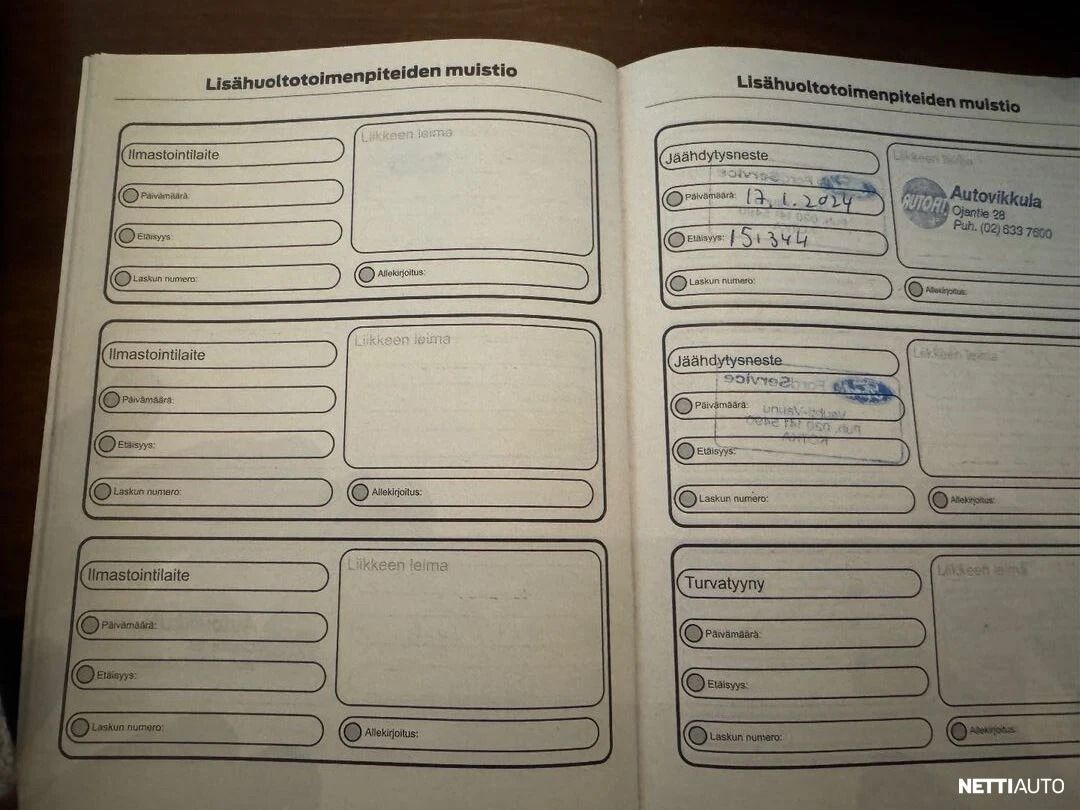 Lisähuoltotoimenpiteiden muistio
Ilmastointilaite
Liikkeen leima
Päivämäärä:
Etäisyys:
Laskun numero:
Allekirjoitus:
Ilmastointilaite
Liikkeen leima
Päivämäärä:
Etäisyys:
Laskun numero:
Allekirjoitus:
Ilmastointilaite
Liikkeen leima
Päivämäärä:
Etäisyys:
Laskun numero:
Allekirjoitus:
Lisähuoltotoimenpiteiden muistio
Jäähdytysneste
Liikkeen leima
Päivämäärä: 17.1.2024
Etäisyys: 151344
AUTOFIT
Autovikkula
Ojantie 28
Puh. (02) 633 7600
Laskun numero:
Allekirjoitus:
Jäähdytysneste
Liikkeen leima
Ford Service
Päivämäärä:
Puh. 020 141 5490
Etäisyys:
Laskun numero:
Allekirjoitus:
Turvatyyny
Liikkeen leima
Päivämäärä:
Etäisyys:
Laskun numero:
Allekirjoitus:
NETTIAUTO